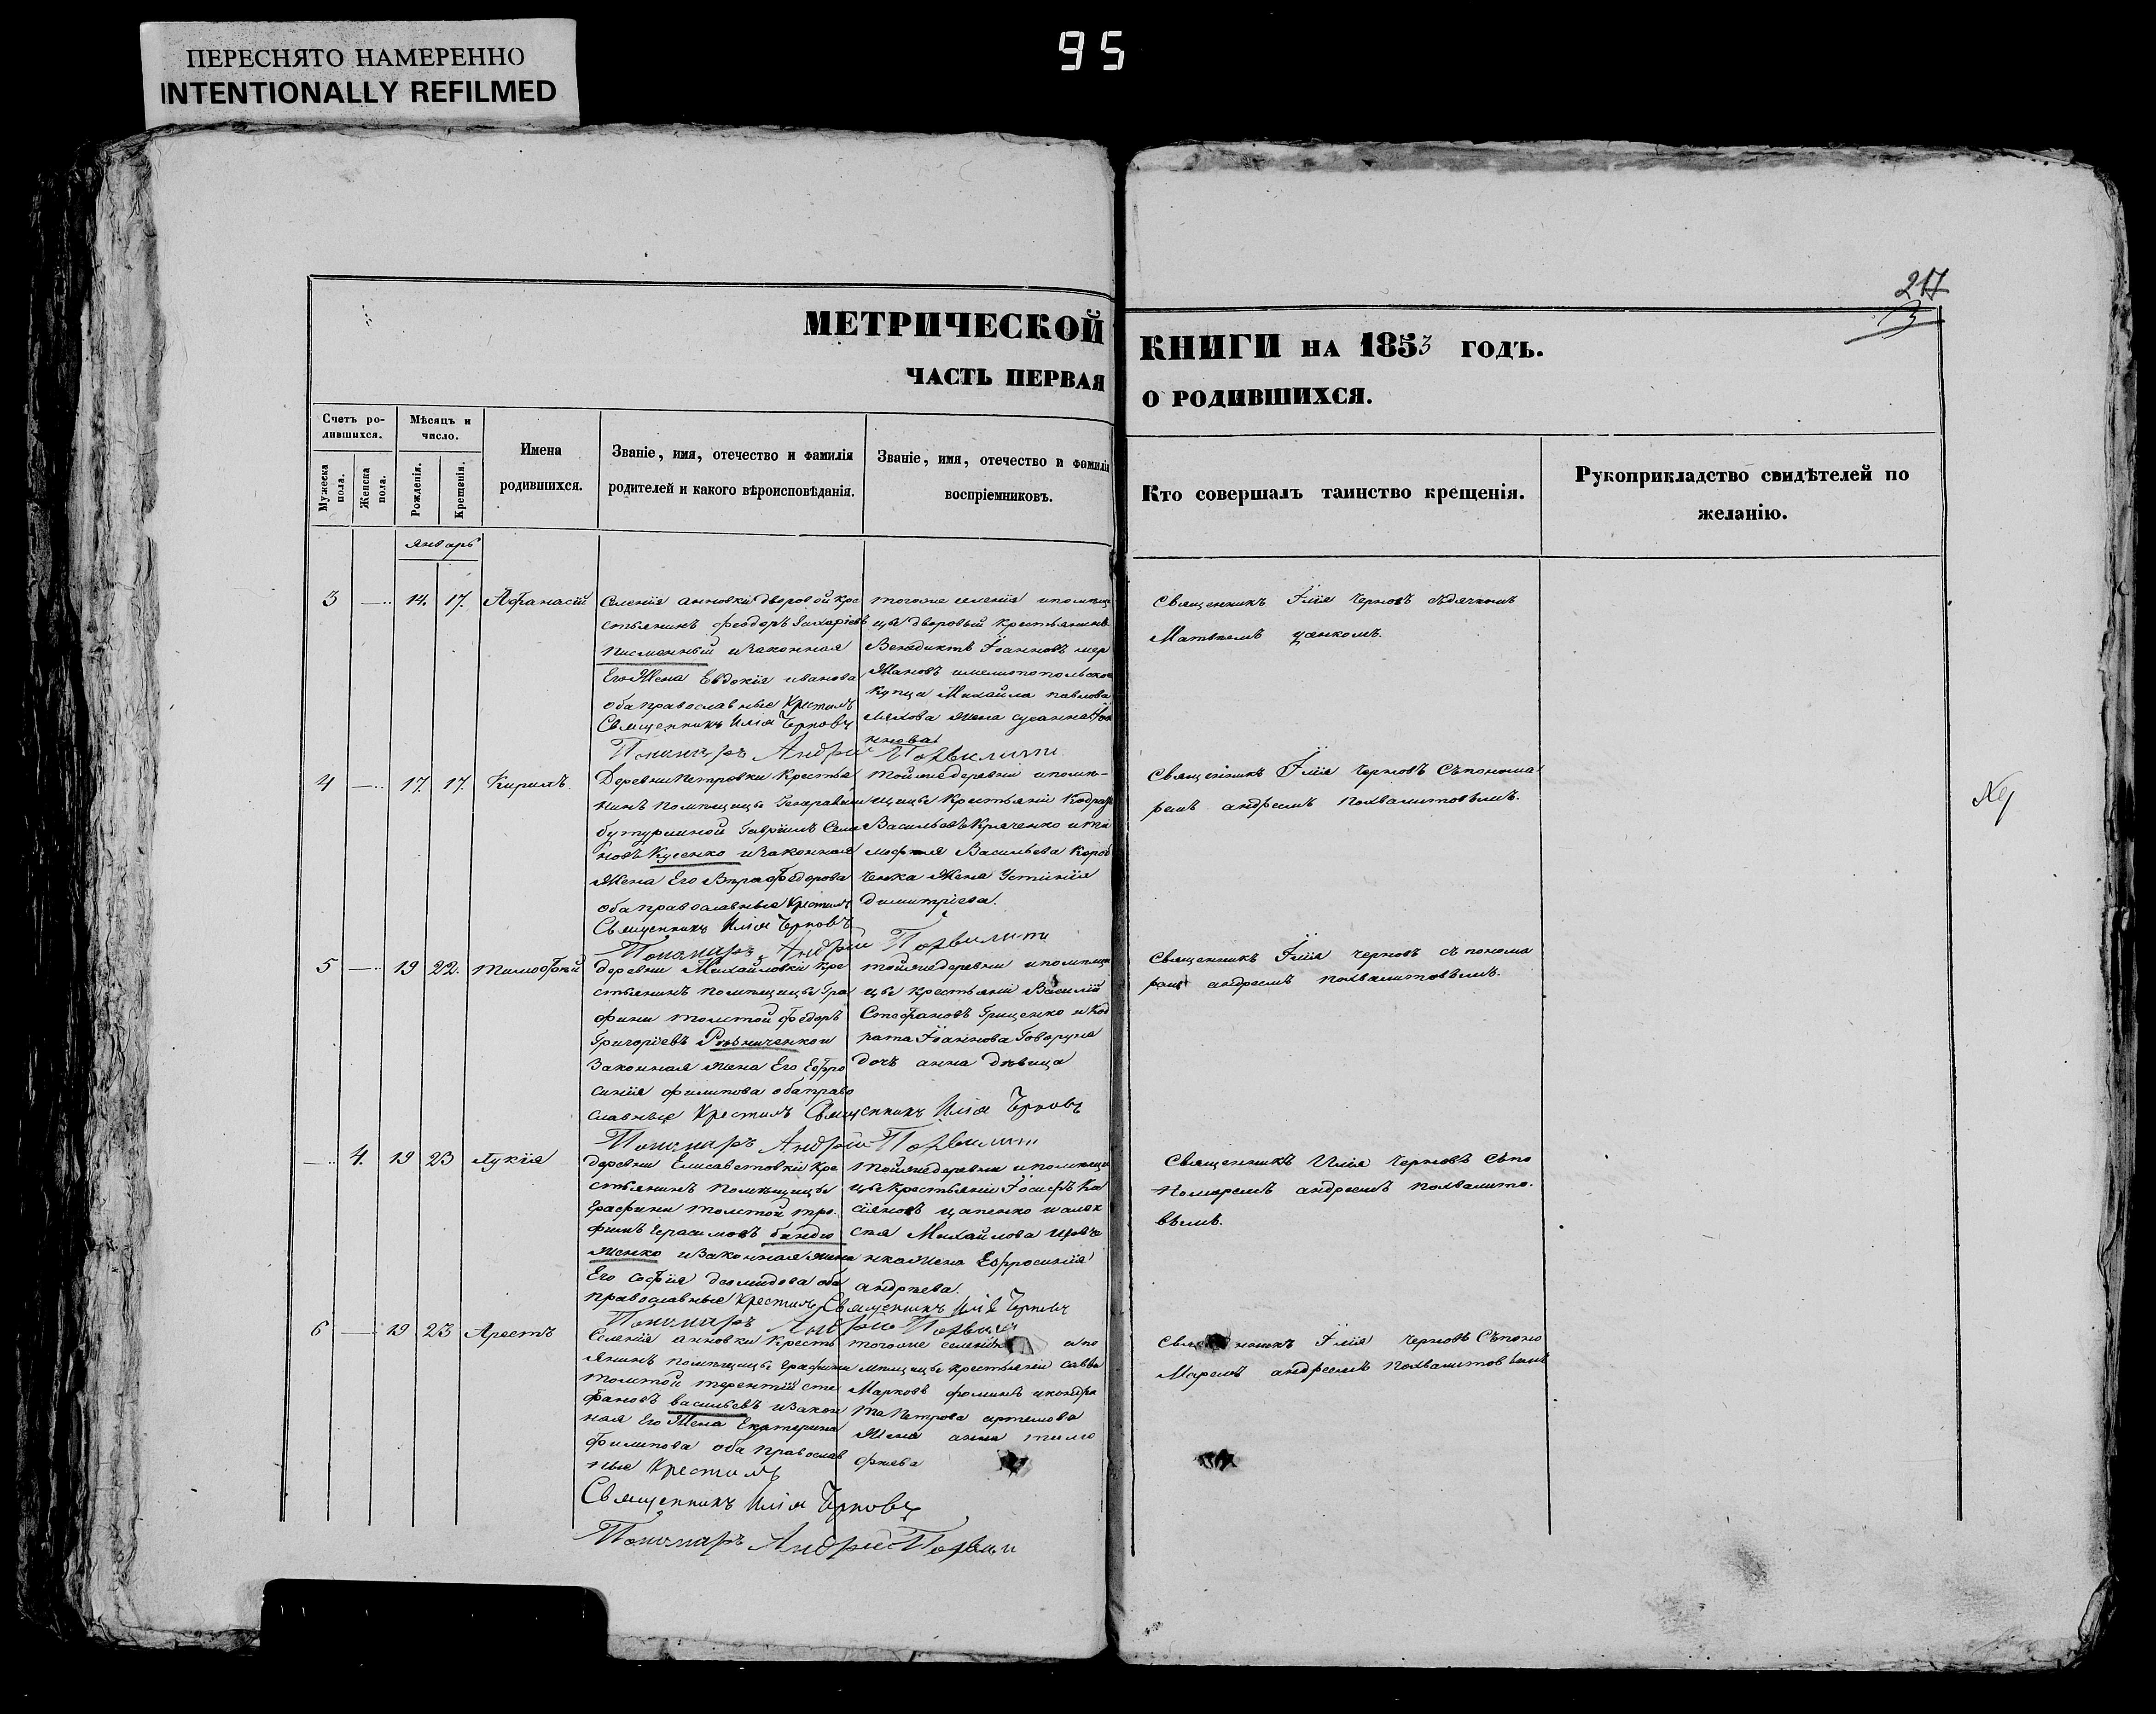 ПЕРЕСНЯТО НАМЕРЕННО
INTENTIONALLY REFILMED
95
217
3
МЕТРИЧЕСКОЙ КНИГИ НА 1853 ГОДЪ.
ЧАСТЬ ПЕРВАЯ О РОДИВШИХСЯ.
Счетъ ро-
дившихся.
Мужеска пола.
Женска пола.
Мѣсяцъ и
число.
Рожденія.
Крещенія.
Имена
родившихся.
Званіе, имя, отечество и фамилія
родителей и какого вѣроисповѣданія.
Званіе, имя, отечество и фамилія
воспріемниковъ.
Кто совершалъ таинство крещенія.
Рукоприкладство свидѣтелей по
желанію.
Январь
3 — 14. 17. Афанасій
Селенія анновки дворовой кре
стьянинъ Феодоръ Захаріевъ
Писменный и законная
Его Жена Евдокія иванова
оба православные Крестилъ
Священникъ Илія Черновъ
Пономаръ Андрей
тогоже селенія и помѣщи
цы дворовый крестьянинъ
Венедиктъ Іоанновъ мер
Жановъ и мелитопольскаго
купца Михаила павлова
жена сусанна Іоа
ннова
Священникъ Ілія Черновъ сдячкомъ
Матвѣемъ
4 — 17. 17. Кирилъ.
Деревни Петровки Крестья
нинъ помѣщицы
бутурлиной Гавріилъ Семе
новъ Кусенко и законная
Жена Его Вѣра Федорова
оба православные Крестилъ
Священникъ Илія Черновъ
Пономаръ Андрей
тойжедеревни и помѣ-
щицы Крестьяни Кодратъ
Васильевъ Кряченко и ти
мофея Васильева Короб
ченка Жена Устинія
димитріева.
Священникъ Ілія Черновъ Съпонома
ремъ андреемъ похвалитовымъ.
5 — 19 22. тимофей
деревни Михайловки Кре
стьянинъ помѣщицы Гра
фини толстой Федоръ
Григоріевъ Рѣзниченко и
Законная жена Его Ефро
синія филипова оба право
славные Крестилъ Священникъ Илія Черновъ
Пономаръ Андрей
тойжедеревни и помѣщи
цы крестьяни Василій
Стефановъ Грищенко и Код
рата Іоаннова Говоруна
дочь анна дѣвица
Священникъ Ілія Черновъ съ понома
ремъ андреемъ похвалитовымъ.
— 4. 19 23 Лукія
деревни Елисаветовки Кре
стьянинъ помѣщицы
графини толстой тро-
фимъ герасимовъ
женко и законная жена
Его Софія деомидова оба
православные Крестилъ Священникъ Илія Черновъ
Пономаръ Андрей
тойжедеревни и помѣщи
цы крестьяни Іосифъ Ка
сіяновъ цапенко и алек
сѣя Михайлова
нка жена Ефросинія
андрѣева.
Священникъ Илія Черновъ Съпо
номаремъ андреемъ похвалито-
вымъ.
6 — 19 23 Арестъ
Селенія анновки Кресть
янинъ помѣщицы графини
толстой терентій сте
фановъ васильевъ и закон
ная его Жена Екатерина
Филипова оба православ
ные Крестилъ
Священникъ Илія Черновъ
Пономаръ Андрей
тогоже селенія и по
мѣщицы крестьяни савва
Марковъ фоминъ и кондра
та Петрова артемова
Жена анна тимо
фѣева
Священникъ Ілія Черновъ Съпоно
Маремъ андреемъ похвалитовымъ